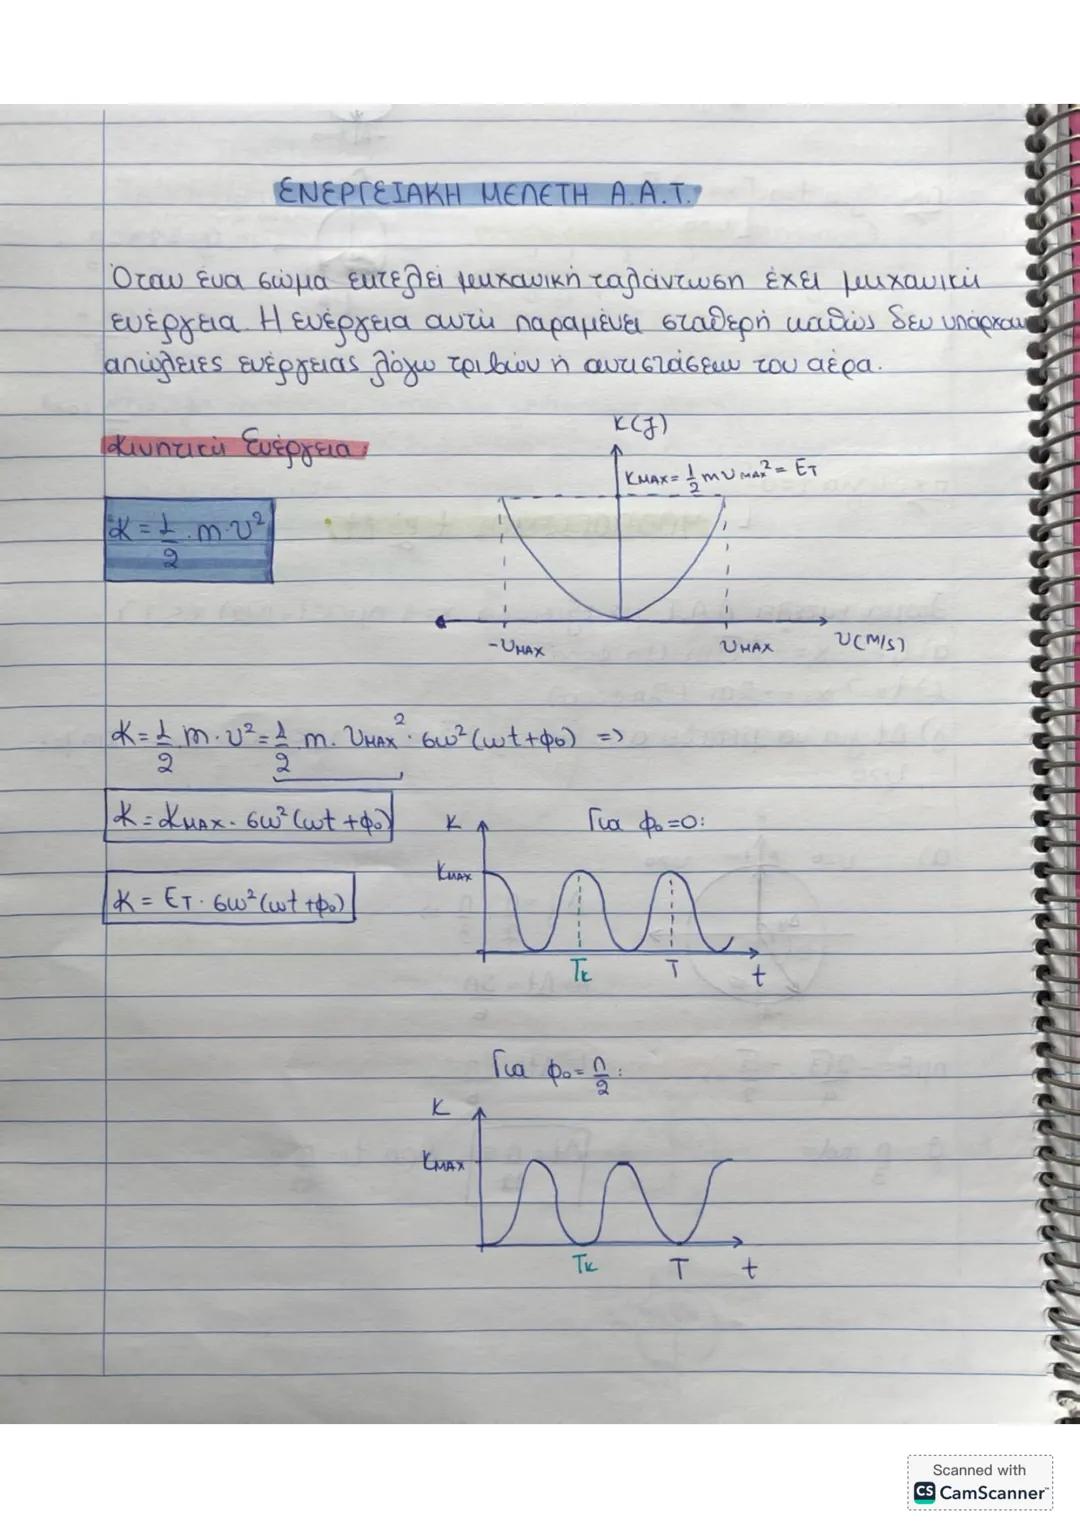 ΕΝΕΡΓΕΙΑΚΗ ΜΕΛΕΤΗ Α.Α.Τ.
Όταν ένα σώμα εκτελεί μηχανική ταλάντωση έχει μηχανική
ενέργεια. Η ενέργεια αυτή παραμένει σταθερή καθώς δεν υπάρχουν
απώλειες ενέργειας λόγω τριβών ή αντιστάσεων του αέρα.
K(J)
Κινητική Ενέργεια
KMAX = 1/2 m υMAX² = ET
K = 1/2 · m · υ²
-υMAX υMAX υ(m/s)
K = 1/2 m · υ² = 1/2 m · υMAX² · συν²(ωt+φ₀) =>
K = KMAX · συν²(ωt+φ₀)
K Για φ₀=0:
KMAX
K = ET · συν²(ωt+φ₀)
Tκ T t
Για φ₀ = π/2 :
K
KMAX
Tκ T t
Scanned with
CS CamScanner